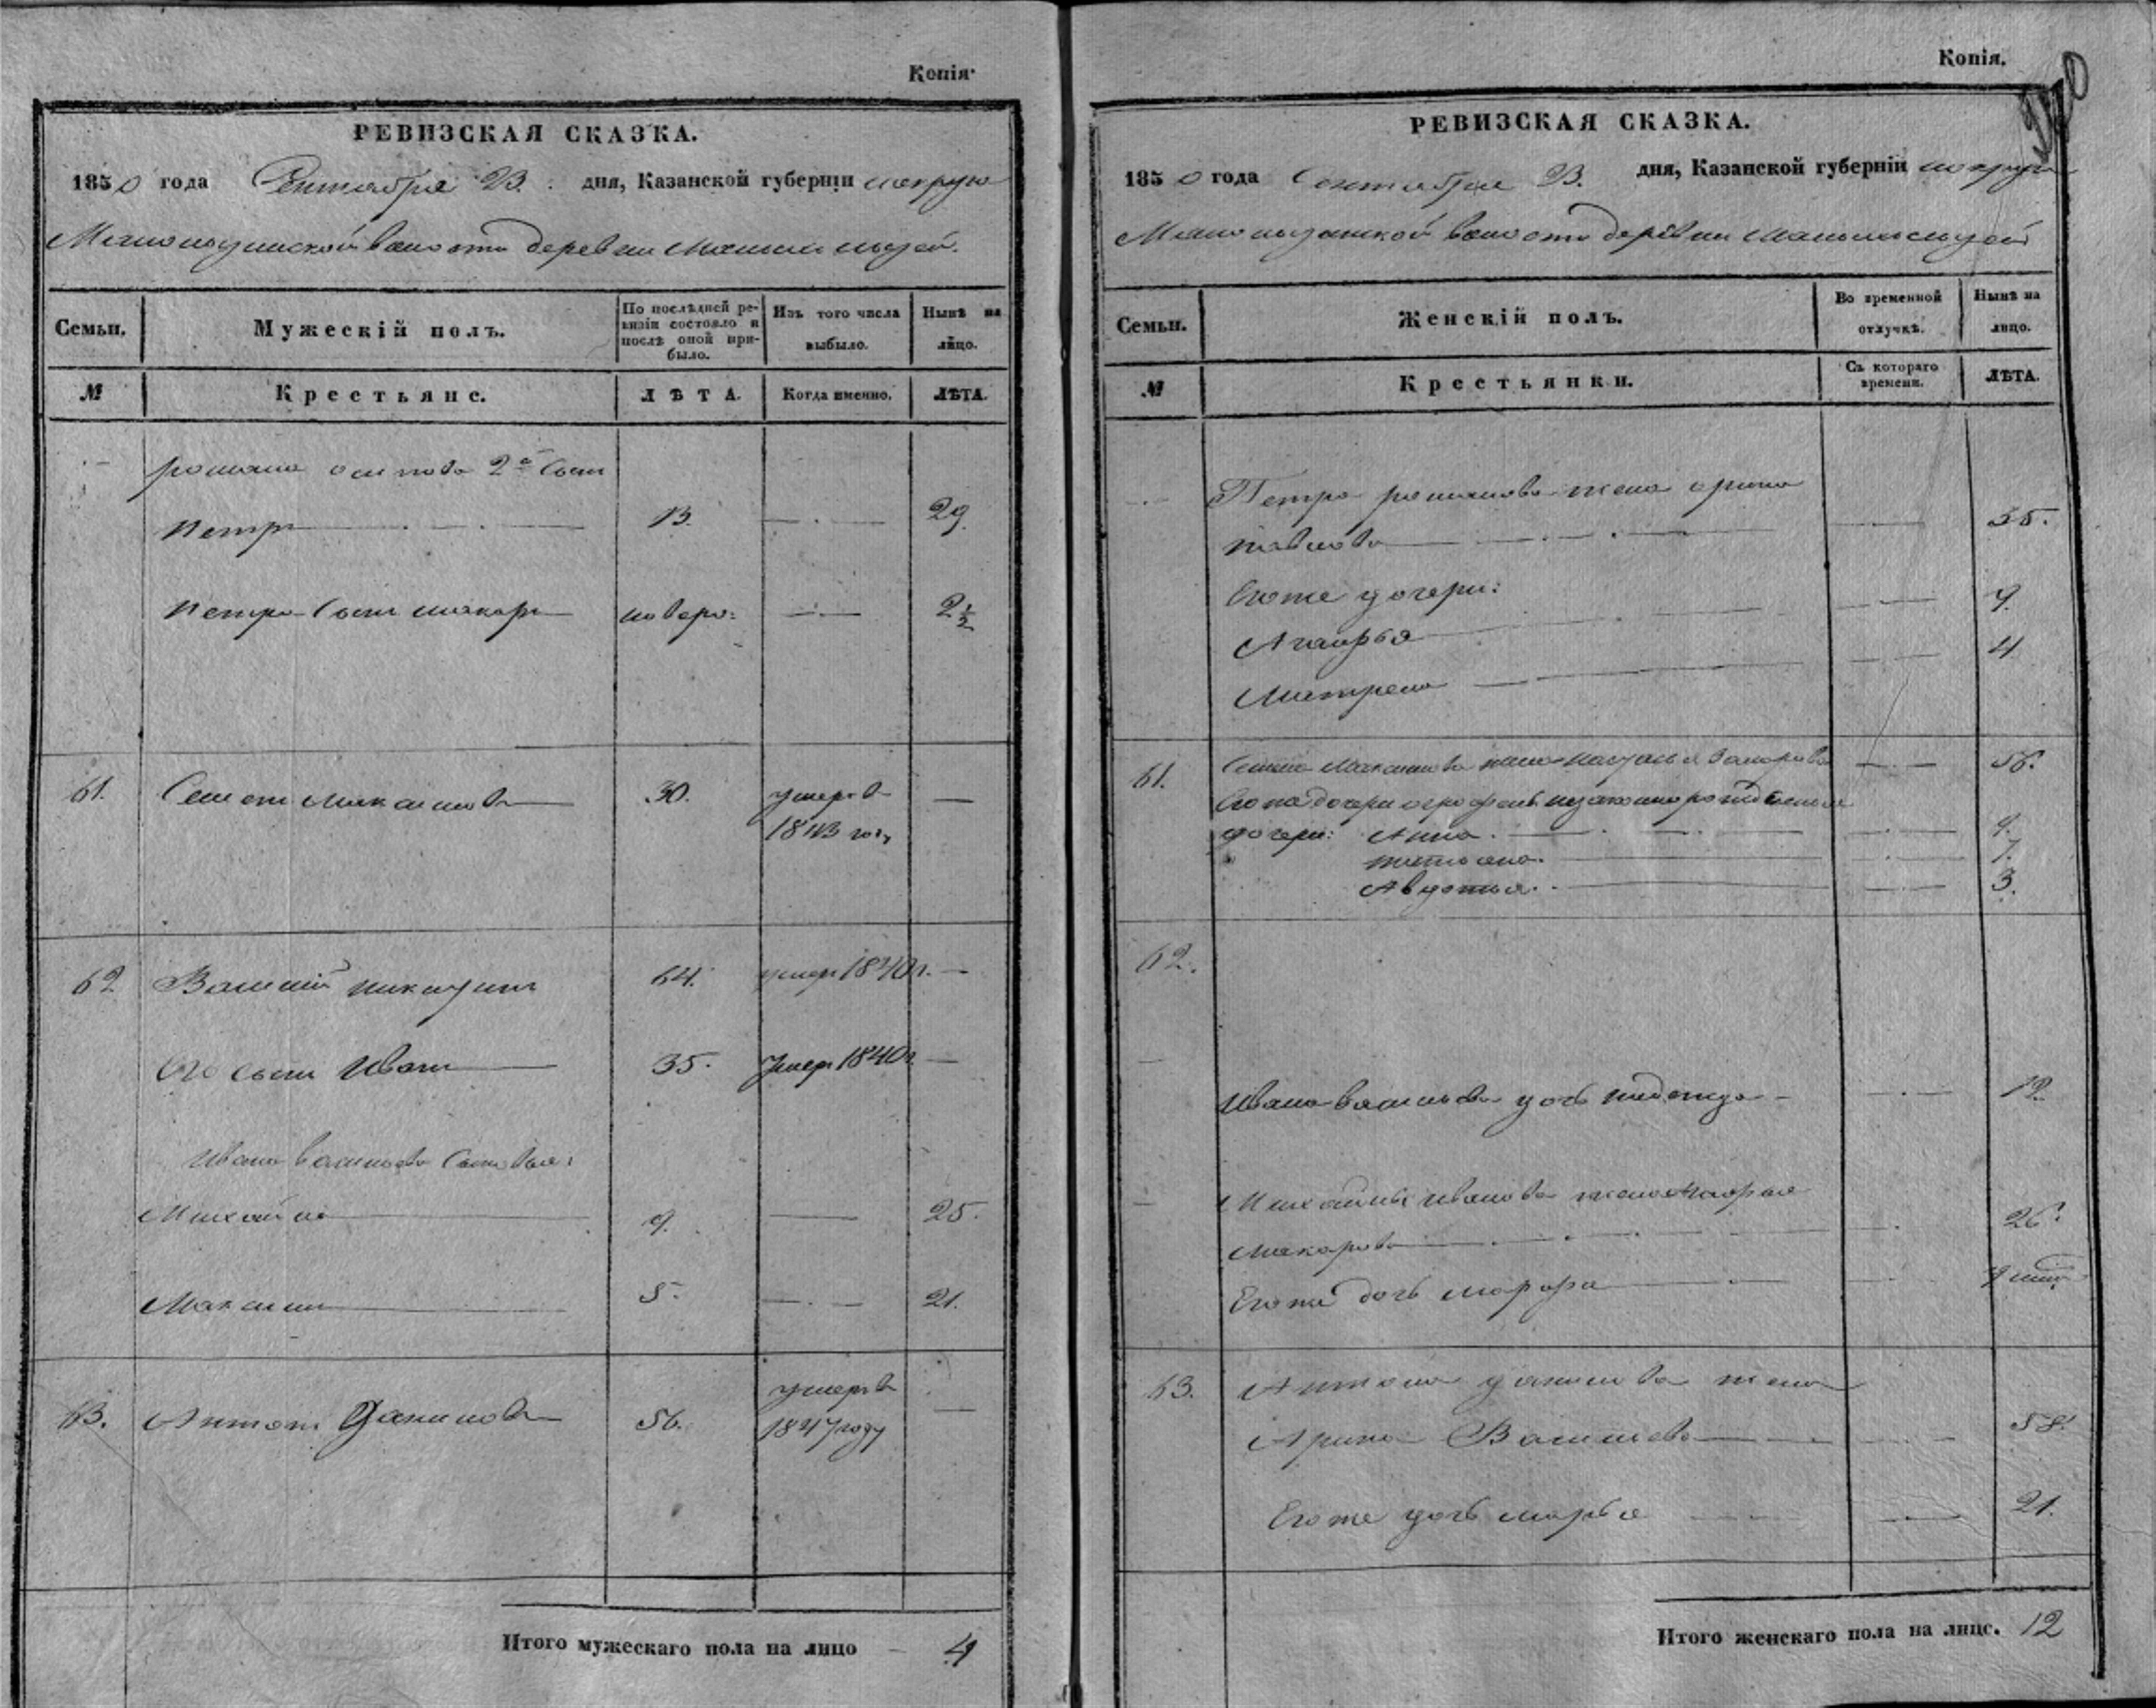 Копія.
РЕВИЗСКАЯ СКАЗКА.
1850 года Сентября 23. дня, Казанской губерніи
волости деревни
Семьи.
Мужескій полъ.
По послѣдней ревизіи состояло и послѣ оной прибыло.
Изъ того числа выбыло.
Нынѣ на лицо.
№
Крестьяне.
ЛѢТА.
Когда именно.
ЛѢТА.
романа осипова 2й сынъ
петръ 13. 29
петра сынъ макаръ новоро: 2½
61. Семенъ Максимовъ 30. умеръ в 1843 году
62 Василий никитинъ 64. умеръ 1840 г.
Его сынъ Иванъ 35. Умеръ 1840 г.
Ивана васильева сыновья:
Михайло 9. 25.
Максимъ 5. 21.
63. Антонъ Даниловъ 56. умеръ в 1847 году
Итого мужескаго пола на лицо 4
Копія.
РЕВИЗСКАЯ СКАЗКА.
1850 года Сентября 23. дня, Казанской губерніи
волости деревни
Семьи.
Женскій полъ.
Во временной отлучкѣ.
Нынѣ на лицо.
№
Крестьянки.
Съ котораго времени.
ЛѢТА.
Петра романова жена орина
павлова 35.
Егоже дочери:
9.
Матрена 4
61. Семена Максимова жена Наталья 56.
Егоже дочери незаконнорожденные
дочери: Анна. 9.
татьяна. 7.
Авдотья. 3.
62.
Ивана васильева дочь 12.
Михайлы иванова жена
макарова 26.
Егоже дочь
63. Антона данилова жена
Арина Васильева 58.
Егоже дочь марья 21.
Итого женскаго пола на лицо. 12